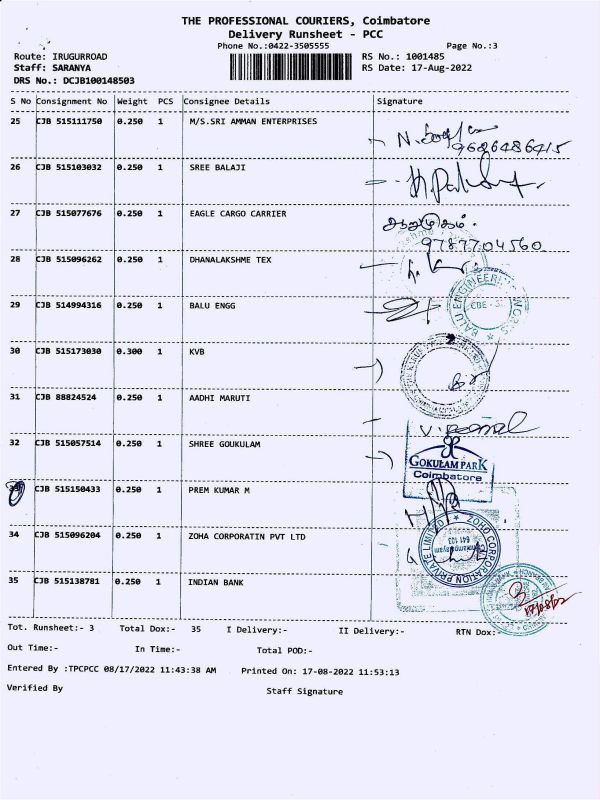 THE PROFESSIONAL COURIERS, Coimbatore
Delivery Runsheet - PCC
Phone No.:0422-3505555
Page No.:3
Route: IRUGURROAD
RS No.: 1001485
Staff: SARANYA
RS Date: 17-Aug-2022
DRS No.: DCJB100148503
S No Consignment No Weight PCS Consignee Details Signature
25 CJB 515111750 0.250 1 M/S.SRI AMMAN ENTERPRISES
9686486415
26 CJB 515103032 0.250 1 SREE BALAJI
27 CJB 515077676 0.250 1 EAGLE CARGO CARRIER
ஆறுமுகம்.
9787704560
28 CJB 515096262 0.250 1 DHANALAKSHME TEX
29 CJB 514994316 0.250 1 BALU ENGG
BALU ENGINEERING WORKS
30 CJB 515173030 0.300 1 KVB
31 CJB 88824524 0.250 1 AADHI MARUTI
32 CJB 515057514 0.250 1 SHREE GOUKULAM
GOKULAM PARK
Coimbatore
33 CJB 515150433 0.250 1 PREM KUMAR M
34 CJB 515096204 0.250 1 ZOHA CORPORATIN PVT LTD
ZOHO CORPORATION PRIVATE LIMITED
641 103
35 CJB 515138781 0.250 1 INDIAN BANK
Tot. Runsheet:- 3 Total Dox:- 35 I Delivery:- II Delivery:- RTN Dox:-
Out Time:- In Time:- Total POD:-
Entered By :TPCPCC 08/17/2022 11:43:38 AM Printed On: 17-08-2022 11:53:13
Verified By Staff Signature